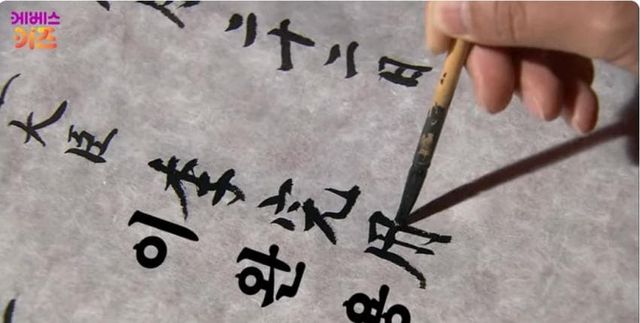 에베스
키즈
二十二日
大臣 李完用
이완용